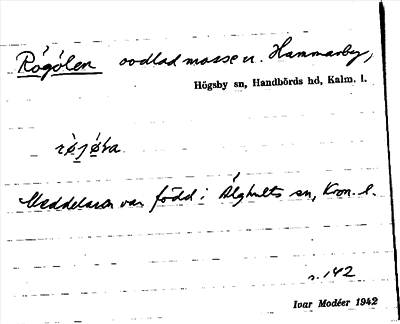 Rógólen oodlad mosse u. Hammarby,
Högsby sn, Handbörds hd, Kalm. l.
Meddelaren var född i Älghults sn, Kron. l.
s. 142
Ivar Modéer 1942